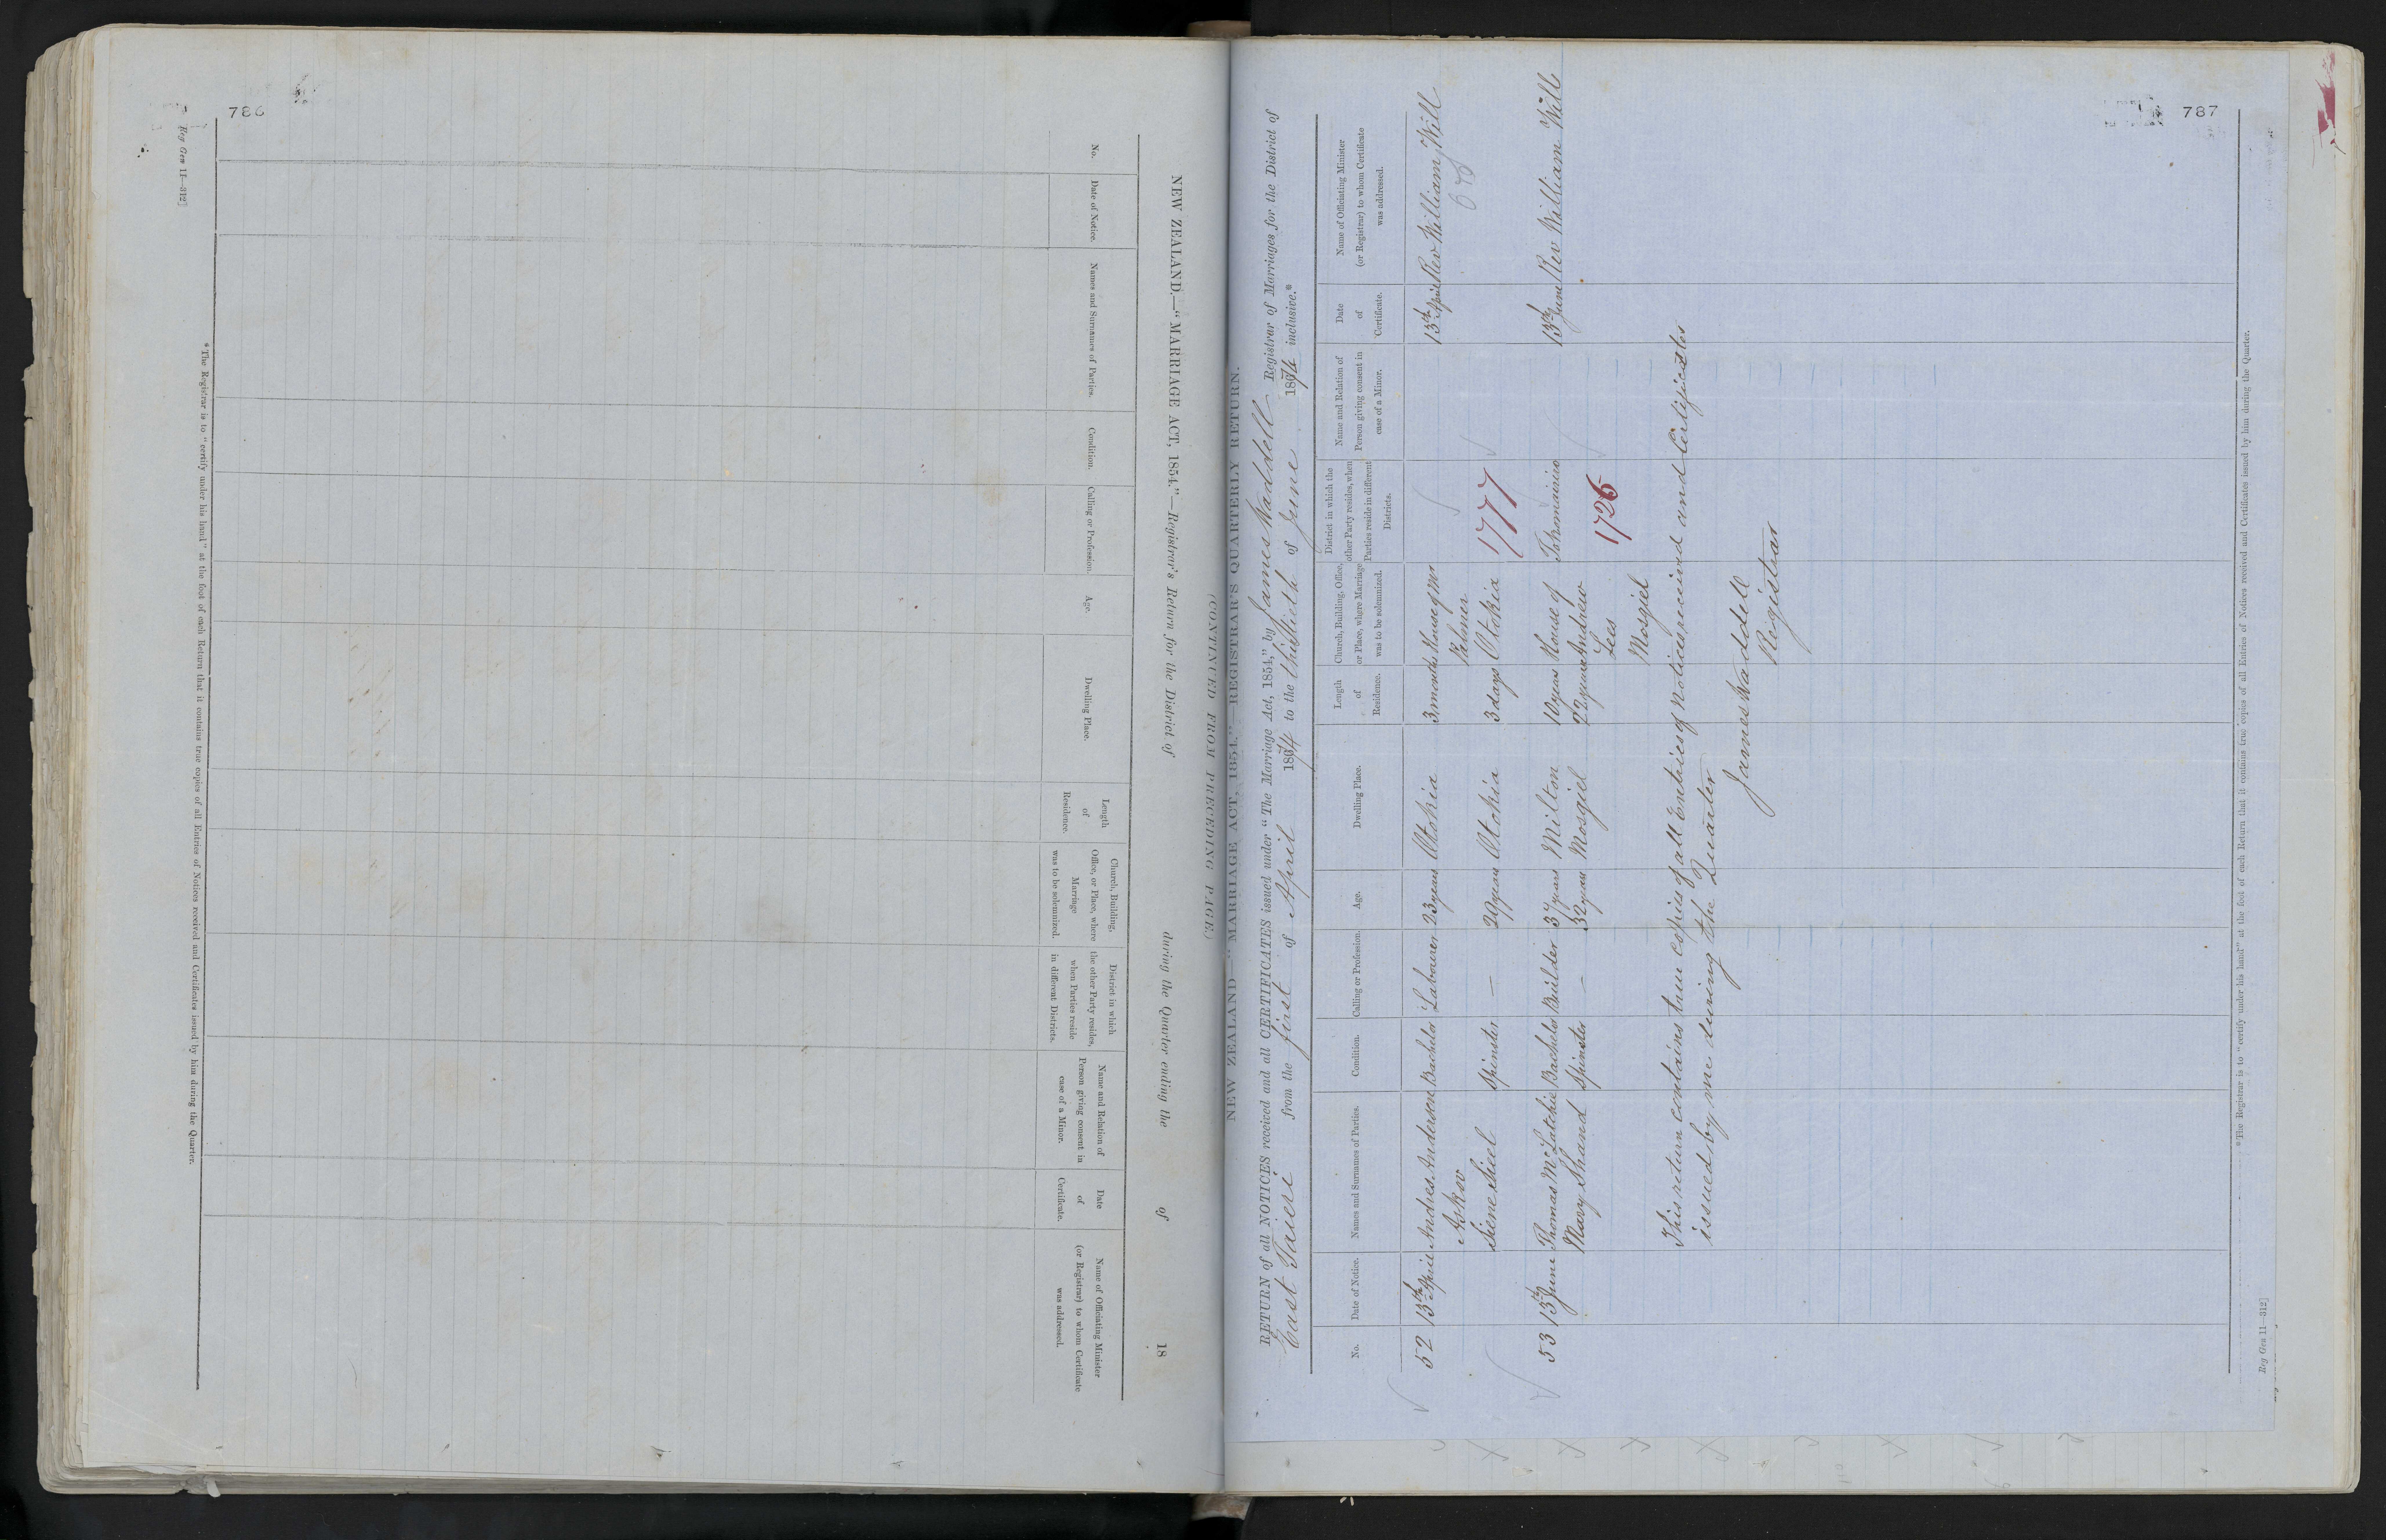 786
NEW ZEALAND.—"MARRIAGE ACT, 1854."—Registrar's Return for the District of during the Quarter ending the of 18
(CONTINUED FROM PRECEDING PAGE.)
No. Date of Notice. Names and Surnames of Parties. Condition. Calling or Profession. Age. Dwelling Place. Length of Residence. Church, Building, Office, or Place, where Marriage was to be solemnized. District in which the other Party resides, when Parties reside in different Districts. Name and Relation of Person giving consent in case of a Minor. Date of Certificate. Name of Officiating Minister (or Registrar) to whom Certificate was addressed.
* The Registrar is to "certify under his hand" at the foot of each Return that it contains true copies of all Entries of Notices received and Certificates issued by him during the Quarter.
Reg Gen 11—312]
787
NEW ZEALAND—"MARRIAGE ACT, 1854."—REGISTRAR'S QUARTERLY RETURN.
RETURN of all NOTICES received and all CERTIFICATES issued under "The Marriage Act, 1854," by James Waddell Registrar of Marriages for the District of
East Taieri from the first of April 1874 to the thirtieth of June 1874 inclusive.*
No. Date of Notice. Names and Surnames of Parties. Condition. Calling or Profession. Age. Dwelling Place. Length of Residence. Church, Building, Office, or Place, where Marriage was to be solemnized. District in which the other Party resides, when Parties reside in different Districts. Name and Relation of Person giving consent in case of a Minor. Date of Certificate. Name of Officiating Minister (or Registrar) to whom Certificate was addressed.
52 13th April Andres Anderson Bachelor Labourer 23 years Otokia 3 months House of Mr 13th April Rev William Will
Askov Palmer
Siene Sieel Spinster — 29 years Otokia 3 days Otokia 1777
53 13th June Thomas McLatchie Bachelor Builder 37 years Milton 10 years House of Tokomairiro 13th June Rev William Will
Mary Shand Spinster — 32 years Mosgiel 22 years Andrew
Lees 1726
Mosgiel
This return contains true copies of all Entries of Notices received and Certificates
issued by me during the Quarter
James Waddell
Registrar
* The Registrar is to "certify under his hand" at the foot of each Return that it contains true copies of all Entries of Notices received and Certificates issued by him during the Quarter.
Reg Gen 11—312]